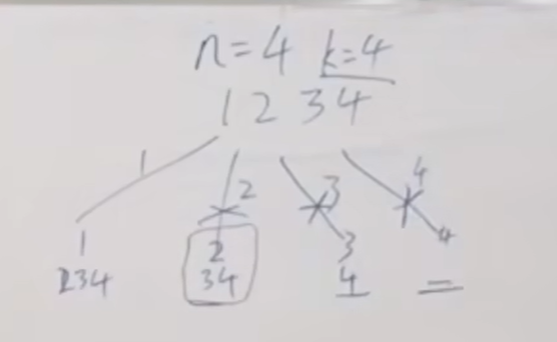 n=4 k=4
1 2 3 4
1 2 3 4
1 2 3 4
234 34 4